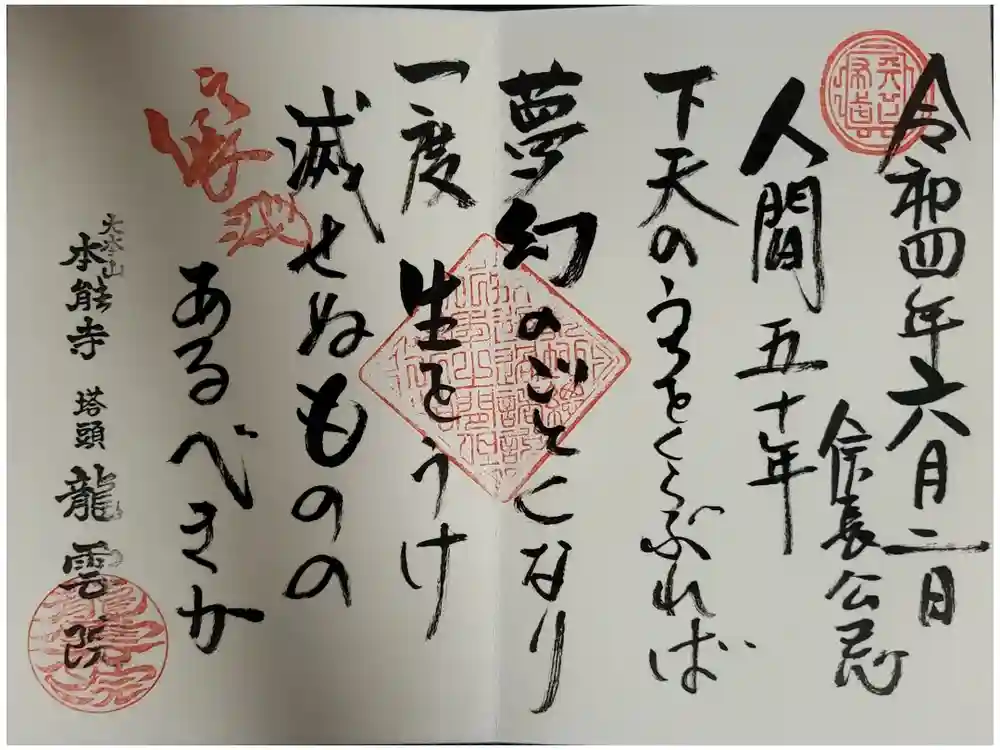 令和四年六月二日
信長公忌
人間 五十年
下天のうちをくらぶれば
夢幻のごとくなり
一度 生をうけ
滅せぬものの
あるべきか
大本山
本能寺 塔頭 龍雲院